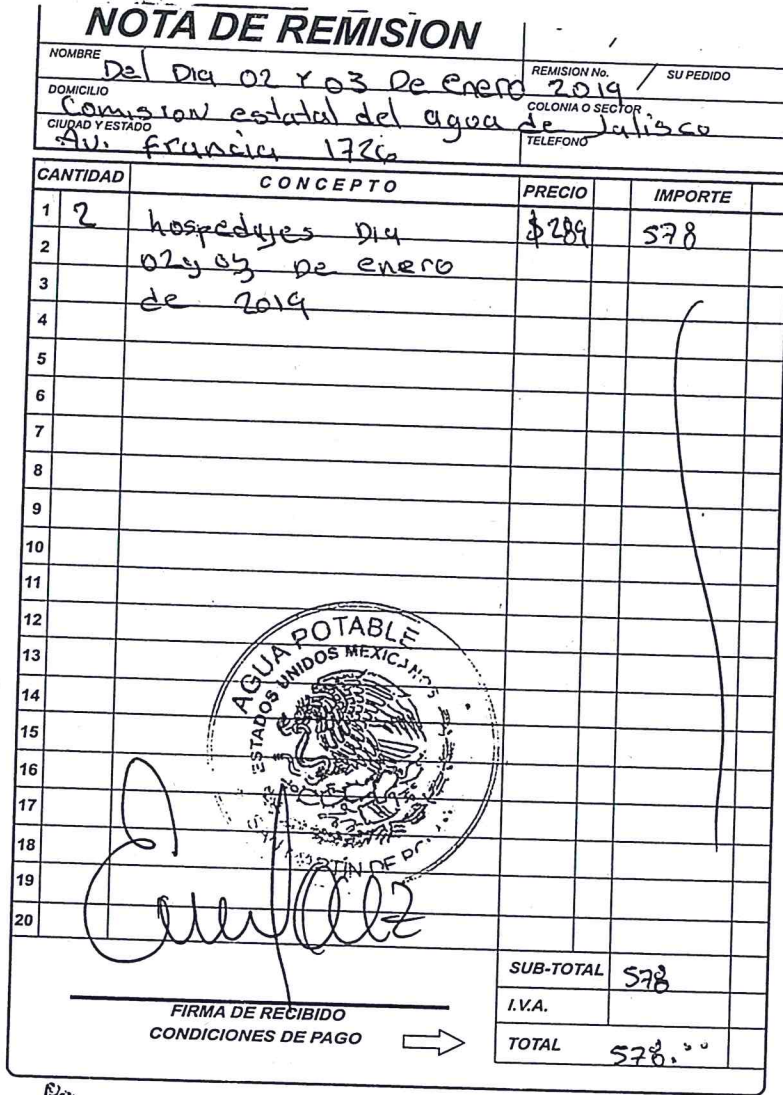 NOTA DE REMISION
NOMBRE
Del Dia 02 Y 03 De enero 2019
REMISION No.
SU PEDIDO
DOMICILIO
Comision estatal del agua de Jalisco
COLONIA O SECTOR
CIUDAD Y ESTADO
Av. francia 1726
TELEFONO
CANTIDAD CONCEPTO PRECIO IMPORTE
1 2 hospedajes Dia $289 578
2 02 y 03 De enero
3 de 2019
4
5
6
7
8
9
10
11
12
13
14
15
16
17
18
19
20
AGUA POTABLE
ESTADOS UNIDOS MEXICANOS
SUB-TOTAL 578
I.V.A.
TOTAL 578.00
FIRMA DE RECIBIDO
CONDICIONES DE PAGO